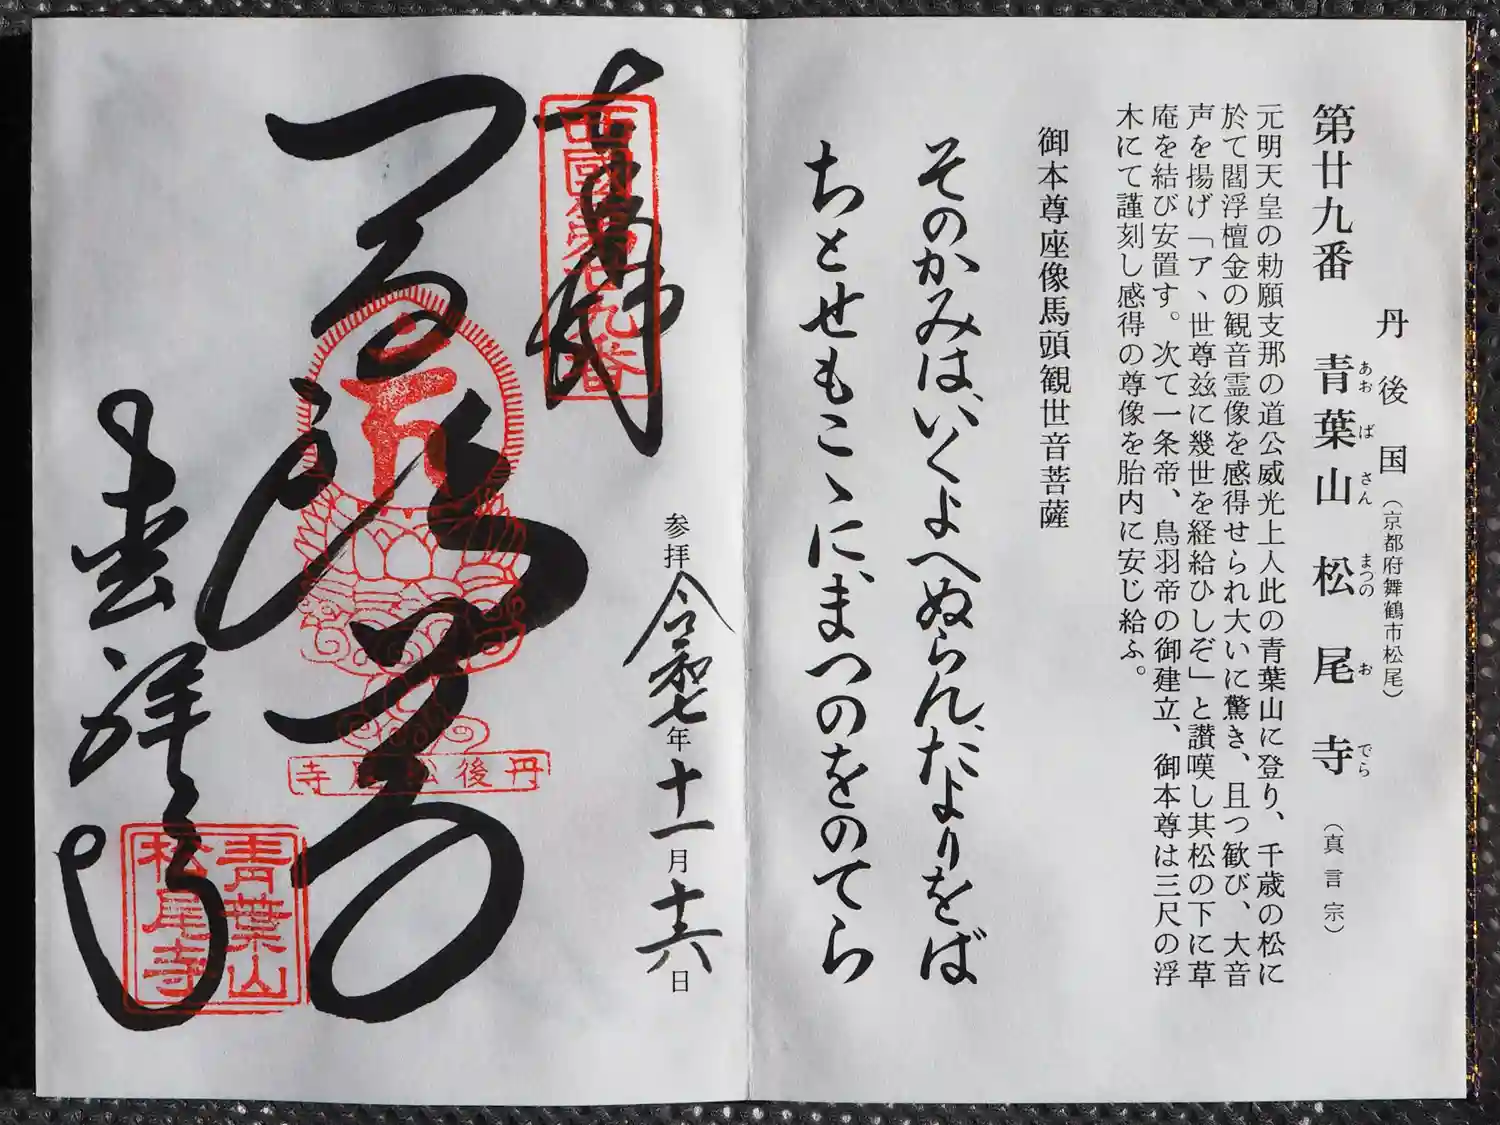 丹後国（京都府舞鶴市松尾）
第廿九番 青葉山 松尾寺（真言宗）
あおばさん まつのおでら
元明天皇の勅願支那の道公威光上人此の青葉山に登り、千歳の松に
於て閻浮檀金の観音霊像を感得せられ大いに驚き、且つ歓び、大音
声を揚げ「アヽ世尊玆に幾世を経給ひしぞ」と讃嘆し其松の下に草
庵を結び安置す。次て一条帝、鳥羽帝の御建立、御本尊は三尺の浮
木にて謹刻し感得の尊像を胎内に安じ給ふ。
御本尊座像馬頭観世音菩薩
そのかみは、いくよへぬらん、たよりをば
ちとせもこゝに、まつのをのてら
参拝 令和七年十一月十六日
西國第廿九番
丹後松尾寺
青葉山
松尾寺